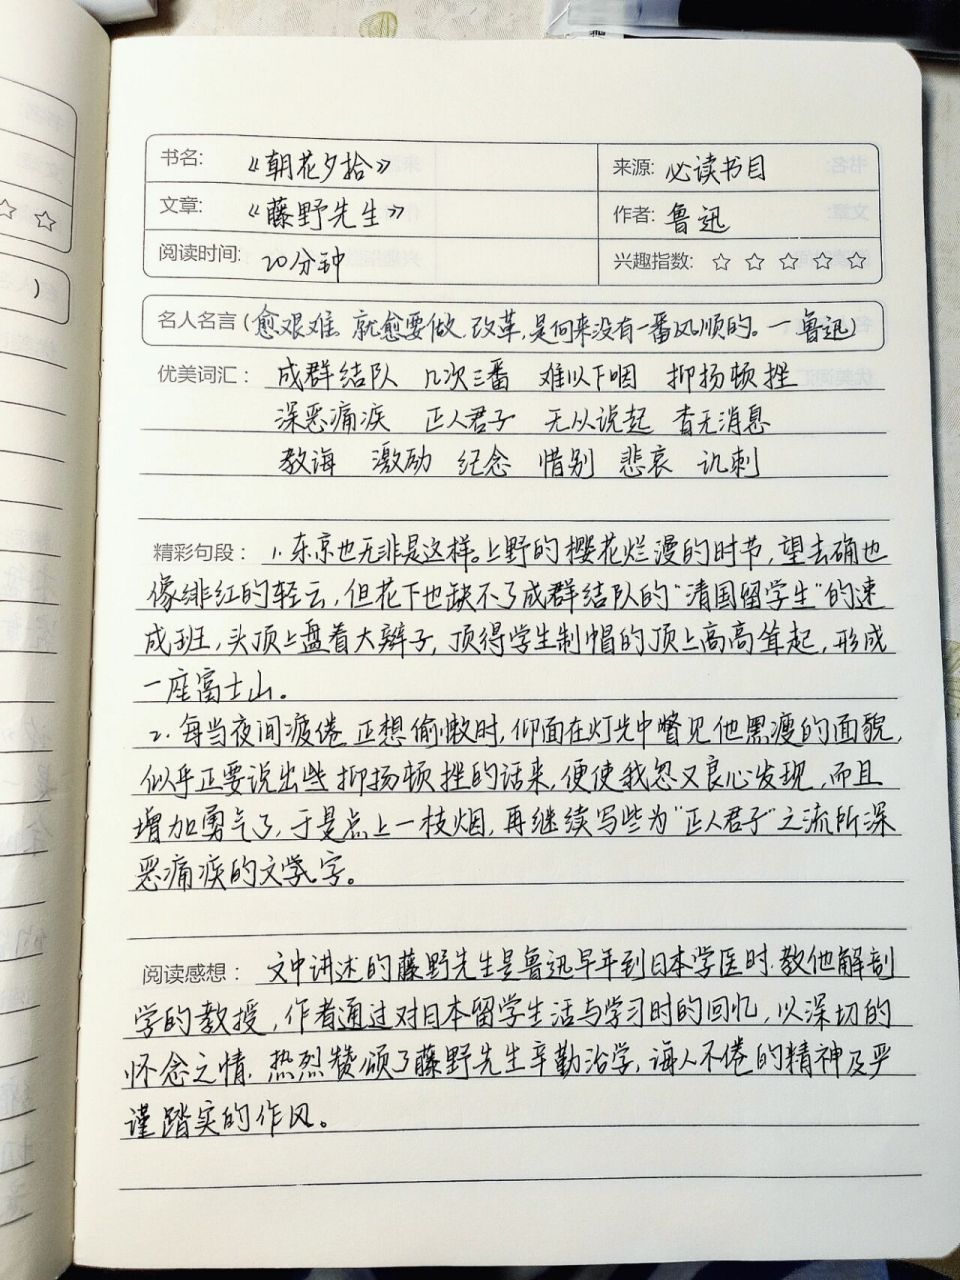 书名: 《朝花夕拾》 来源: 必读书目
文章: 《藤野先生》 作者: 鲁迅
阅读时间: 20分钟 兴趣指数: ☆ ☆ ☆ ☆ ☆
名人名言(愈艰难,就愈要做.改革,是向来没有一番风顺的。—鲁迅)
优美词汇: 成群结队 几次三番 难以下咽 抑扬顿挫
深恶痛疾 正人君子 无从说起 杳无消息
教诲 激励 纪念 惜别 悲哀 讥刺
精彩句段: 1.东京也无非是这样。上野的樱花烂漫的时节,望去确也
像绯红的轻云,但花下也缺不了成群结队的"清国留学生"的速
成班,头顶上盘着大辫子,顶得学生制帽的顶上高高耸起,形成
一座富士山。
2.每当夜间疲倦,正想偷懒时,仰面在灯光中瞥见他黑瘦的面貌,
似乎正要说出些抑扬顿挫的话来,便使我忽又良心发现,而且
增加勇气了,于是点上一枝烟,再继续写些为"正人君子"之流所深
恶痛疾的文字。
阅读感想: 文中讲述的藤野先生是鲁迅早年到日本学医时.教他解剖
学的教授,作者通过对日本留学生活与学习时的回忆,以深切的
怀念之情.热烈赞颂了藤野先生辛勤治学,诲人不倦的精神及严
谨踏实的作风。